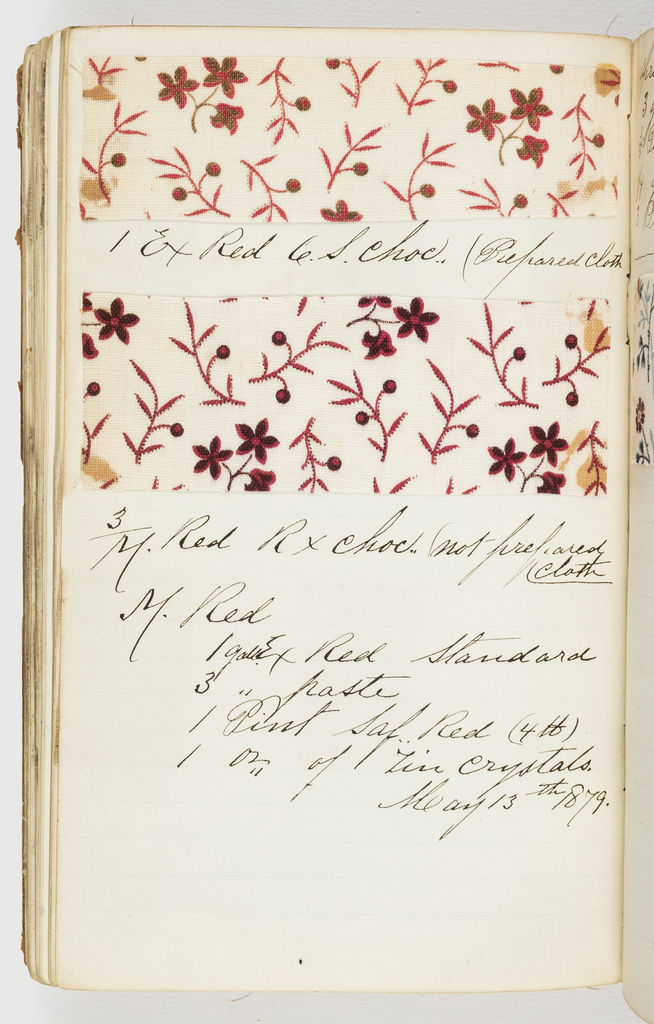 1 Ex Red C.S. Choc.. (Prepared cloth
3/M. Red R x choc.. (not prepared
cloth
M. Red
1 gall Ex Red Standard
3 " paste
1 Pint Saf.. Red (4 lb)
1 oz,, of Tin crystals.
May 13th 1879.